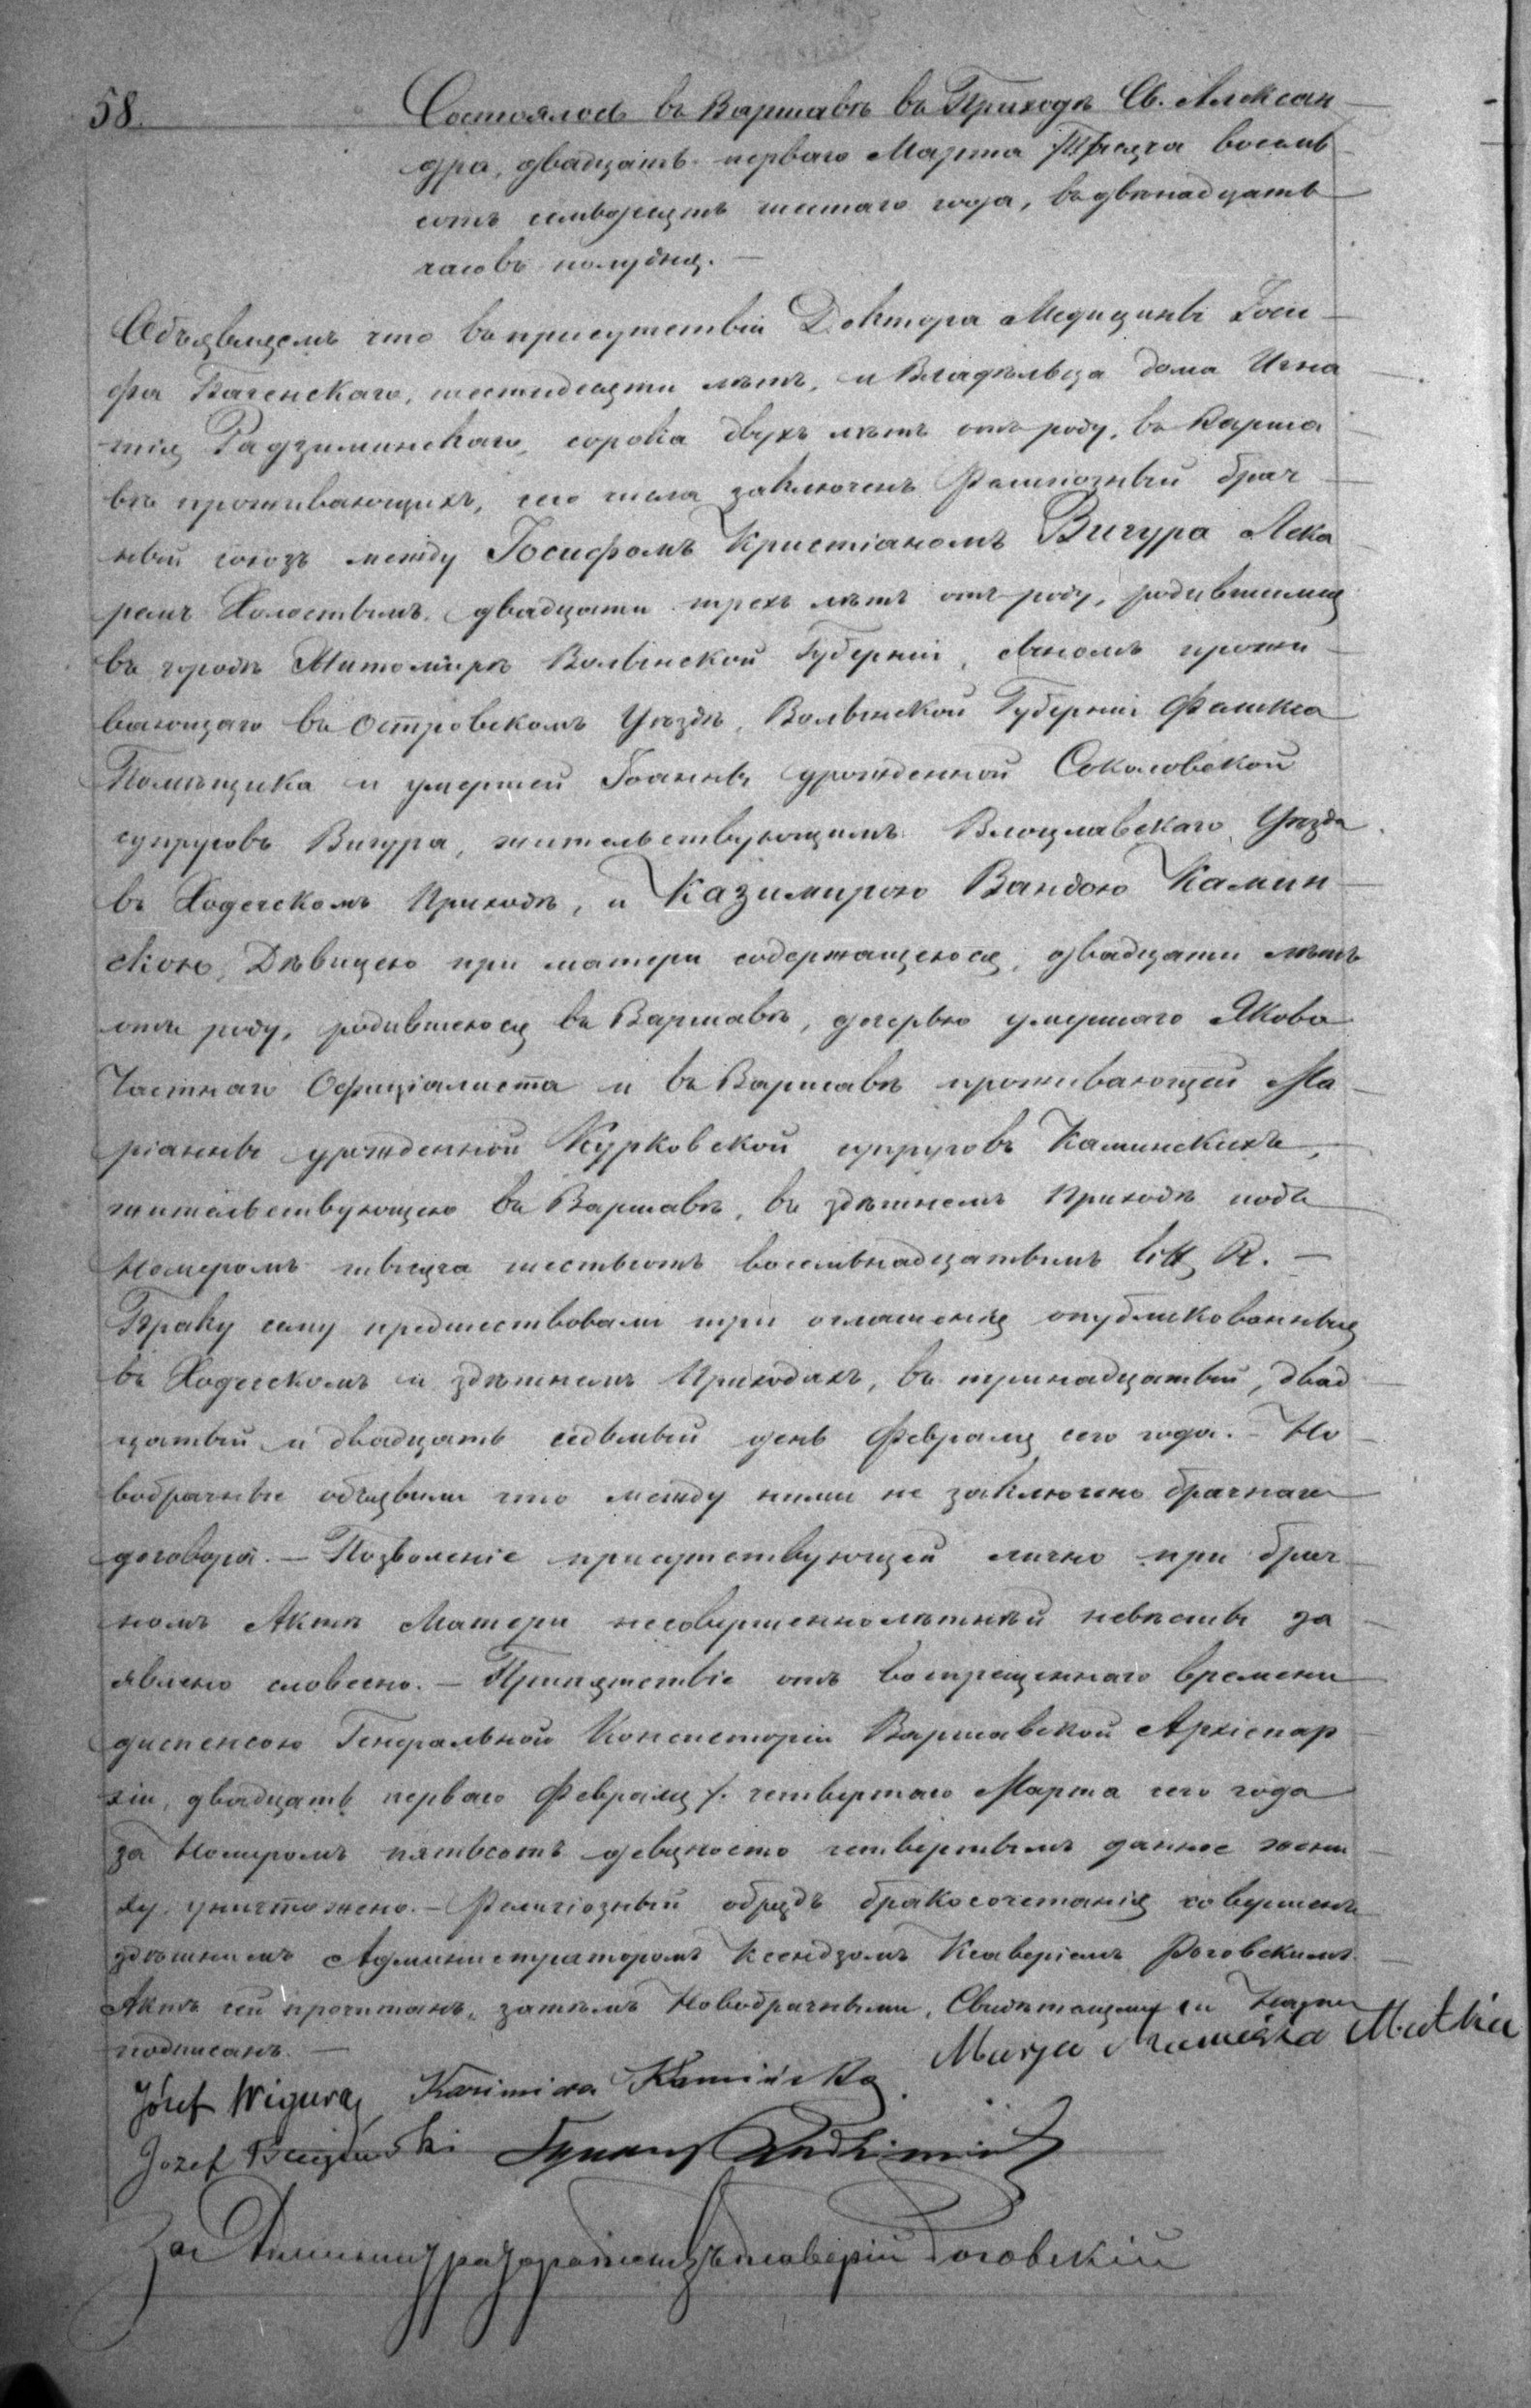 58. Состоялось въ Варшавѣ въ Приходѣ Св. Алексан
дра, двадцать перваго Марта тысяча восемь
сотъ семьдесятъ шестаго года, въ двѣнадцать
часовъ полудня. —
Объявляемъ что въ присутствіи Доктора Медицины Іоси
фа, шестидесяти лѣтъ, и Владѣльца дома Игна
тія Радзиминскаго, сорока двухъ лѣтъ отъ роду, въ Варша
вѣ проживающихъ, сего числа заключенъ Религіозный брач
ный союзъ между Іосифомъ Кристіаномъ Вигура Лека
ремъ Холостымъ, двадцати трехъ лѣтъ отъ роду, родившимся
въ городѣ Житомірѣ Волынской Губерніи, сыномъ прожи
вающаго въ Островскомъ Уѣздѣ, Волынской Губерніи Феликса
Помѣщика и умершей Іоанны урожденной Соколовской
супруговъ Вигура, жительствующимъ Влоцлавскаго Уѣзда
въ Ходечскомъ Приходѣ, и Казимирою Вандою Камин
скою, Дѣвицею при матери содержащеюся, двадцати лѣтъ
отъ роду, родившеюся въ Варшавѣ, дочерью умершаго Якова
Частнаго Офиціалиста и въ Варшавѣ проживающей Ма
ріанны урожденной Курковской супруговъ Каминскихъ,
жительствующею въ Варшавѣ, въ здѣшнемъ Приходѣ подъ
Номеромъ тысяча шестьсотъ восемьнадцатымъ litt R. —
Браку сему предшествовали три оглашенія опубликованныя
въ Ходечскомъ и здѣшнемъ Приходахъ, въ тринадцатый, двад
цатый и двадцать седьмый день Февраля сего года. — Но
вобрачные объявили что между ними не заключено брачнаго
договора. — Позволеніе присутствующей лично при брач
номъ Актѣ Матери несовершеннолѣтней невѣсты за
явлено словесно. — Препятствіе отъ воспрещеннаго времени
диспенсою Генеральной Консисторіи Варшавской Архіепар
хіи, двадцать перваго Февраля /. четвертаго Марта сего года
за Номеромъ пятьсотъ девяносто четвертымъ данное жени
ху уничтожено. — Религіозный обрядъ бракосочетанія совершенъ
здѣшнимъ Администраторомъ Ксендзомъ Ксаверіемъ Роговскимъ.
Актъ сей прочитанъ, затѣмъ Новобрачными, и Нами
подписанъ. —
Marya Kamińska Matka
Józef Wigura, Kazimira Kamińska
Jozef
Роговскій